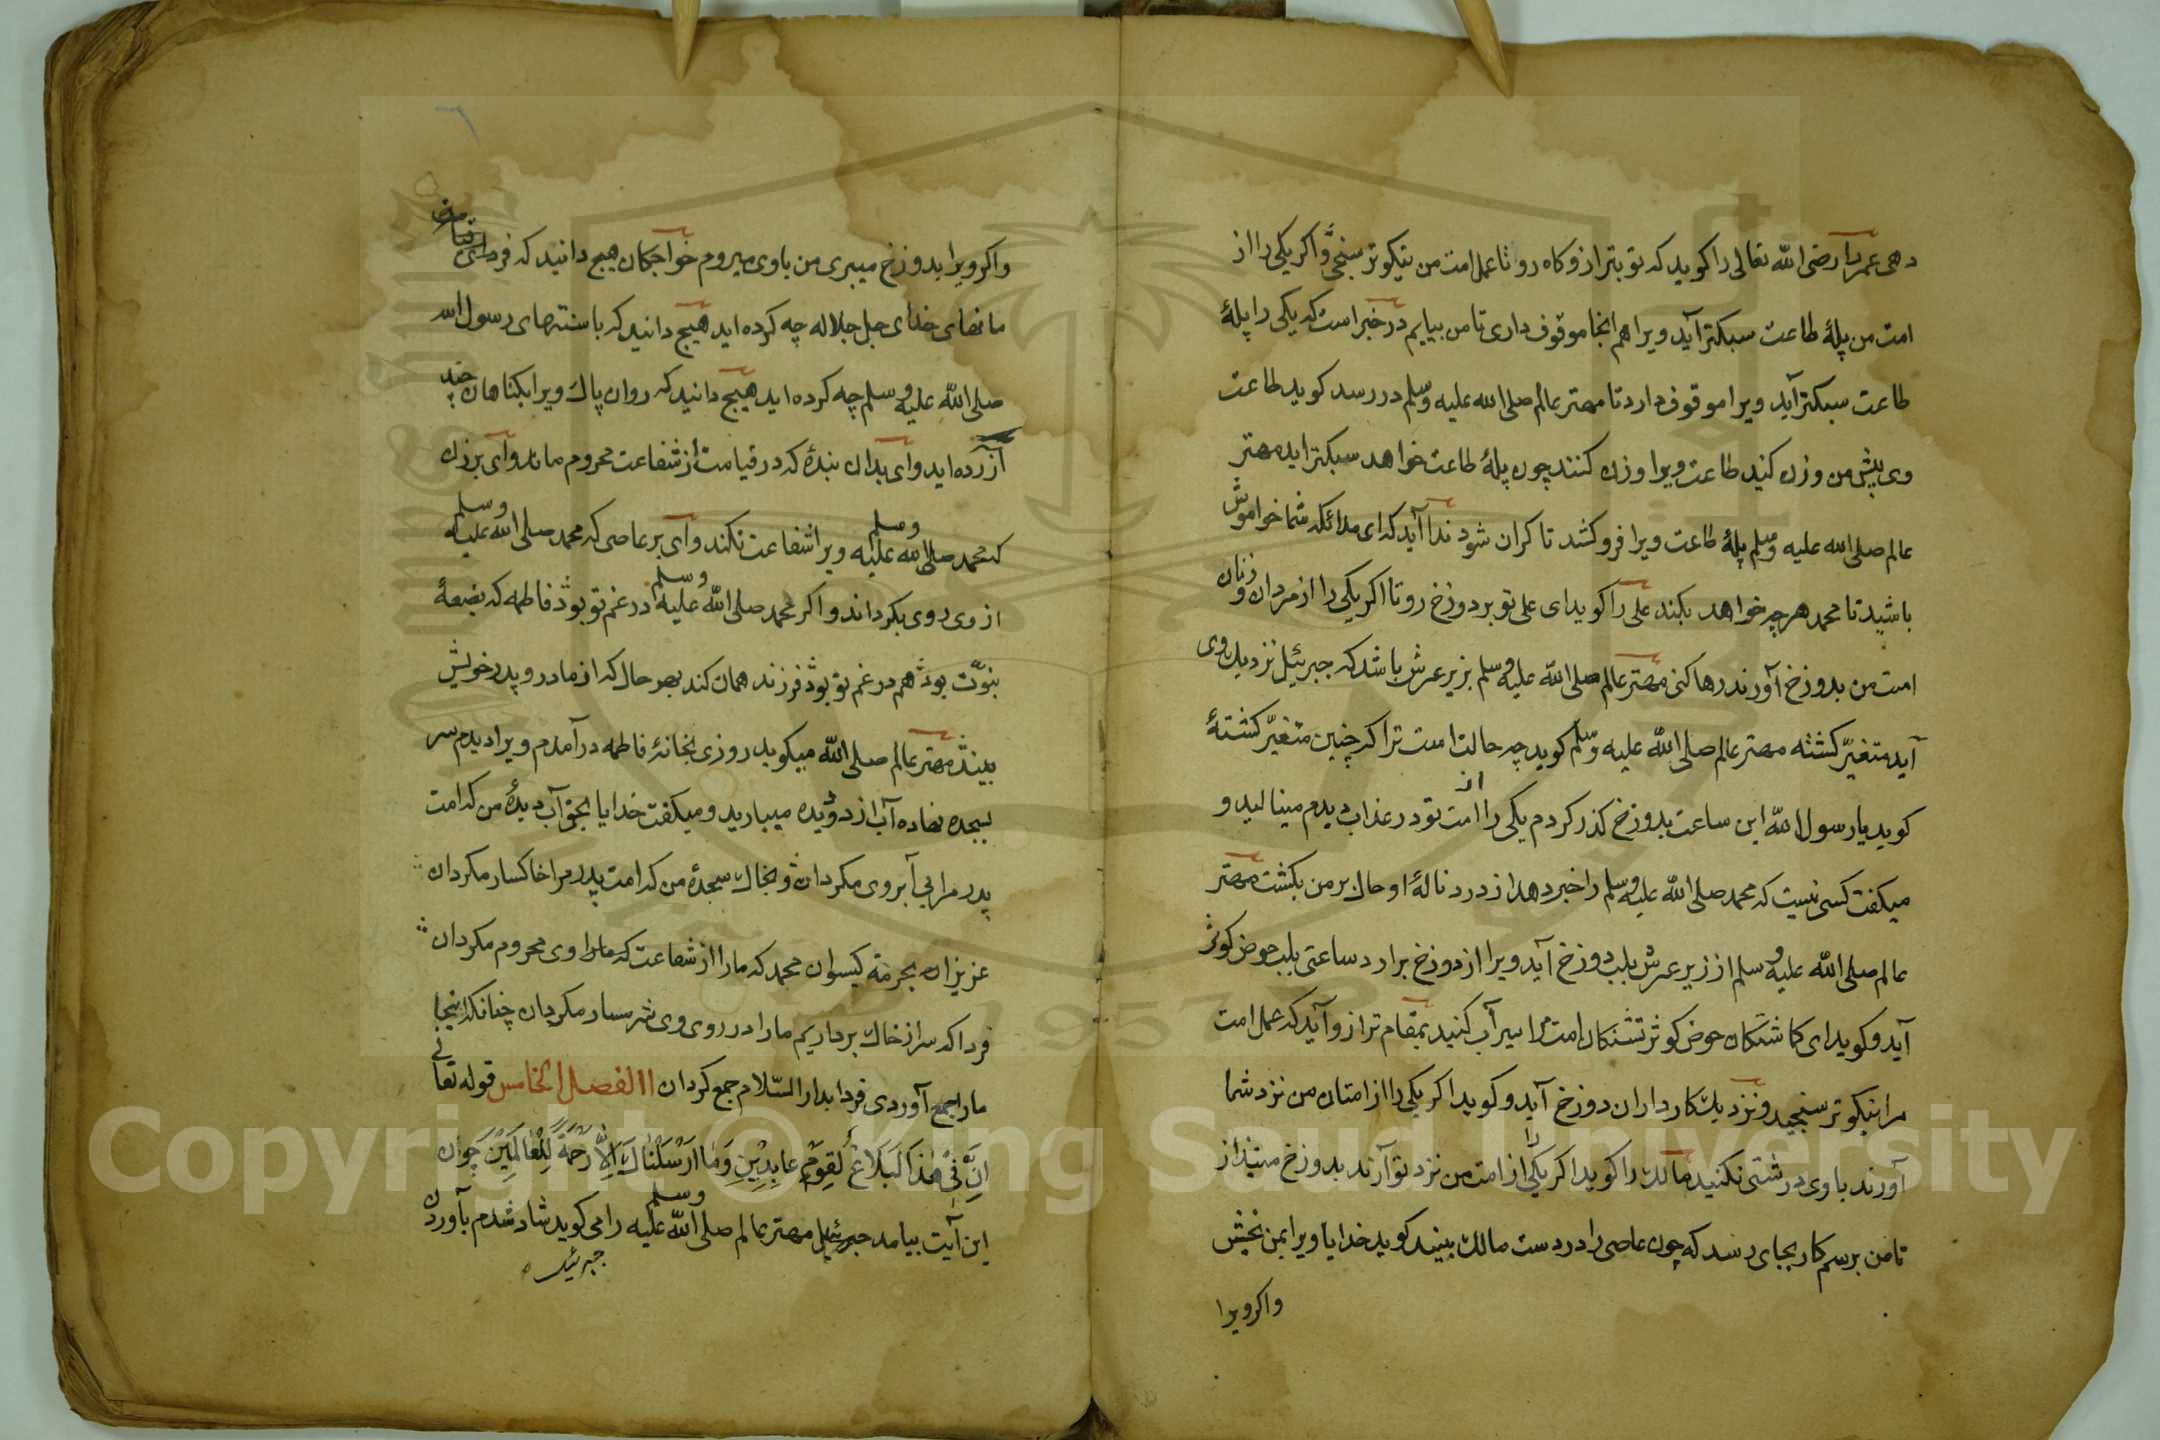 دهی عمر را رضی الله تعالی را کوید که تو بترازو کاه رو تا عمل امت من نیکوتر سنجی و اکر یکی را از
امت من پلهٔ طاعت سبکتر آید ویرا هم انجا موقوف داری تا من بیایم در خبر است که یکی را پلهٔ
طاعت سبکتر آید ویرا موقوف دارد تا مهتر عالم صلی الله علیه وسلم در رسد کوید طاعت
وی پیش من وزن کنید طاعت ویرا وزن کنند چون پلهٔ طاعت خواهد سبکتر اید مهتر
عالم صلی الله علیه وسلم پلهٔ طاعت ویرا فرو کشد تا کران شود ندا آید که ای ملائکه شما خواموش
باشید تا محمد هر چه خواهد بکند علی را کوید ای علی تو بر دوزخ رو تا اکر یکی را از مردان و زنان
امت من بدوزخ آورند رها کنی مهتر عالم صلی الله علیه وسلم بزیر عرش باشد که جبرئیل نزدیک وی
آید متغیّر کشته مهتر عالم صلی الله علیه وسلم کوید چه حالت است ترا که چنین متغیّر کشتهٔ
کوید یا رسول الله این ساعت بدوزخ کذر کردم یکی را از امت تو در عذاب دیدم مینالید و
میکفت کسی نیست که محمد صلی الله علیه وسلم را خبر دهد از درد نالهٔ او حال بر من بکشت مهتر
عالم صلی الله علیه وسلم از زیر عرش بلب دوزخ آید ویرا از دوزخ برارد ساعتی بلب حوض کوثر
آید و کوید ای کماشتکان حوض کوثر تشنکان امت مرا سیرآب کنید بمقام ترازو آید که عمل امت
مرا نیکوتر سنجید و نزدیک کارداران دوزخ آید و کوید اکر یکی را از امتان من نزد شما
آورند با وی درشتی نکنید مالک را کوید اکر یکی را از امت من نزد تو آرند بدوزخ مینداز
تا من برسم کار بجای رسد که چون عاصی را در دست مالک بیند کوید خدایا ویرا بمن بخش
واکر ویرا
واکر ویرا بدوزخ میبری من باوی میروم خواجکان هیچ دانید که فردای قیامت
ما نهای خدای جل جلاله چه کرده اید هیچ دانید که با سنتهای رسول الله
صلی الله علیه وسلم چه کرده اید هیچ دانید که روان پاک ویرا بکناهان چند
آزرده اید وای بدان بندهٔ که در قیامت از شفاعت محروم ماند وای بر زن
که محمد صلی الله علیه وسلم ویرا شفاعت نکند وای بر عاصی که محمد صلی الله علیه وسلم
از وی روی بکرداند و اکر محمد صلی الله علیه وسلم در غم تو بوذ فاطمه که بضعهٔ
نبوّت بوذ هم در غم تو بوذ فرزند همان کند بهر حال که از مادر و پدر خویش
بیند مهتر عالم صلی الله میکوید روزی بخانهٔ فاطمه درآمدم ویرا دیدم سر
بسجده نهاده آب از دو دیده میبارید و میکفت خدایا بحق آب دیدهٔ من که امت
پدر مرا بی آبروی مکردان و بخاک سجدهٔ من که امت پدر مرا خاکسار مکردان
عزیزان بحرمة کیسوان محمد که ما را از شفاعت وی محروم مکردان
فردا که سر از خاک برداریم ما را در روی وی شرمسار مکردان چنانکه اینجا
ما را جمع آوردی فردا بدار السّلام جمع کردان الفصل الخامس قوله تعالی
اِنَّ فِی هٰذَا لَبَلَاغًا لِقَوْمٍ عَابِدِیْنِ وَمَا اَرْسَلْنَاكَ اِلَّا رَحْمَةً لِلْعَالَمِیْنَ چون
این آیت بیامد جبرئیل مهتر عالم صلی الله علیه وسلم را می کوید شاد شدم بآوردن
جبرئیل
Copyright © King Saud University
1957